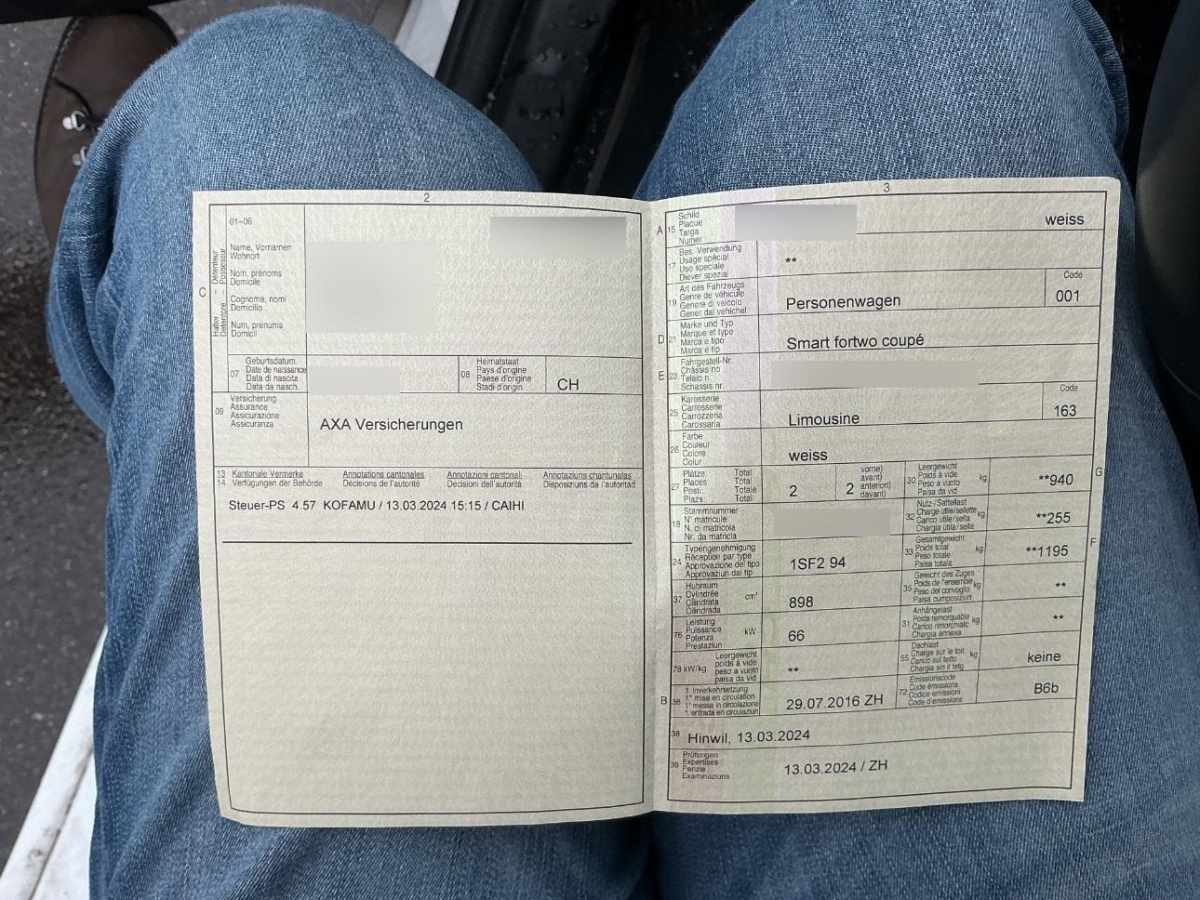 2
01-06
C
Halter Détenteur
Detentore Possessur
Name, Vornamen
Wohnort
Nom, prénoms
Domicile
Cognome, nomi
Domicilio
Num, prenums
Domicil
07
Geburtsdatum
Date de naissance
Data di nascita
Data da nasch.
08
Heimatstaat
Pays d'origine
Paese d'origine
Stadi d'origin
CH
09
Versicherung
Assurance
Assicurazione
Assicuranza
AXA Versicherungen
13 Kantonale Vermerke Annotations cantonales Annotazioni cantonali Annotaziuns chantunalas
14 Verfügungen der Behörde Décisions de l'autorité Décision da l'autorità Disposiziuns da l'autoritad
Steuer-PS 4.57 KOFAMU / 13.03.2024 15:15 / CAIHI
3
A 15
Schild
Plaque
Targa
Numer
weiss
17
Bes. Verwendung
Usage spécial
Uso speciale
Diever spezial
**
19
Art des Fahrzeugs
Genre de véhicule
Genere di veicolo
Gener dal vehichel
Personenwagen
Code
001
D 21
Marke und Typ
Marque et type
Marca e tipo
Marca e tip
Smart fortwo coupé
E 23
Fahrgestell-Nr.
Châssis no
Telaio n.
Schassis nr.
25
Karosserie
Carrosserie
Carrozzeria
Carossaria
Limousine
Code
163
26
Farbe
Couleur
Colore
Colur
weiss
27
Plätze: Total
Places Total
Posti: Totale
Plazs: Total
2
2
vorne)
avant)
anteriori)
davant)
30
Leergewicht
Poids à vide
Peso a vuoto
Paisa da vid
kg
**940
G
18
Stammnummer
N° matricule
N. di matricola
Nr. da matricla
32
Nutz-/Sattellast
Charge utile/sellette
Carico utile/sella
Chargia utila/sella
kg
**255
24
Typengenehmigung
Réception par type
Approvazione del tipo
Approvaziun dal tip
1SF2 94
33
Gesamtgewicht
Poids total
Peso totale
Paisa totala
kg
**1195
F
37
Hubraum
Cylindrée
Cilindrata
Cilindrada
cm³
898
35
Gewicht des Zuges
Poids de l'ensemble
Peso del convoglio
Paisa cumposiziun
kg
**
76
Leistung
Puissance
Potenza
Prestaziun
kW
66
31
Anhängelast
Poids remorquable
Carico rimorchiato
Chargia annexa
kg
**
78 kW/kg
Leergewicht
poids à vide
peso a vuoto
paisa da vid
**
55
Dachlast
Charge sur le toit
Carico sul tetto
Chargia sin il tetg
kg
keine
B 36
1. Inverkehrsetzung
1re mise en circulation
1a messa in circolazione
1. entrada en circulaziun
29.07.2016 ZH
72
Emissionscode
Code émissions
Codice emissioni
Code d'emissiuns
B6b
38
Hinwil, 13.03.2024
39
Prüfungen
Expertises
Perizie
Examinaziuns
13.03.2024 / ZH